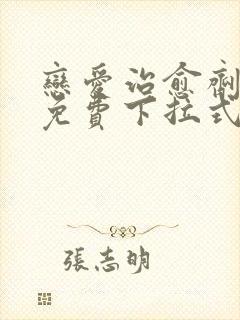 戀愛治愈劑
免費下拉式
張志明